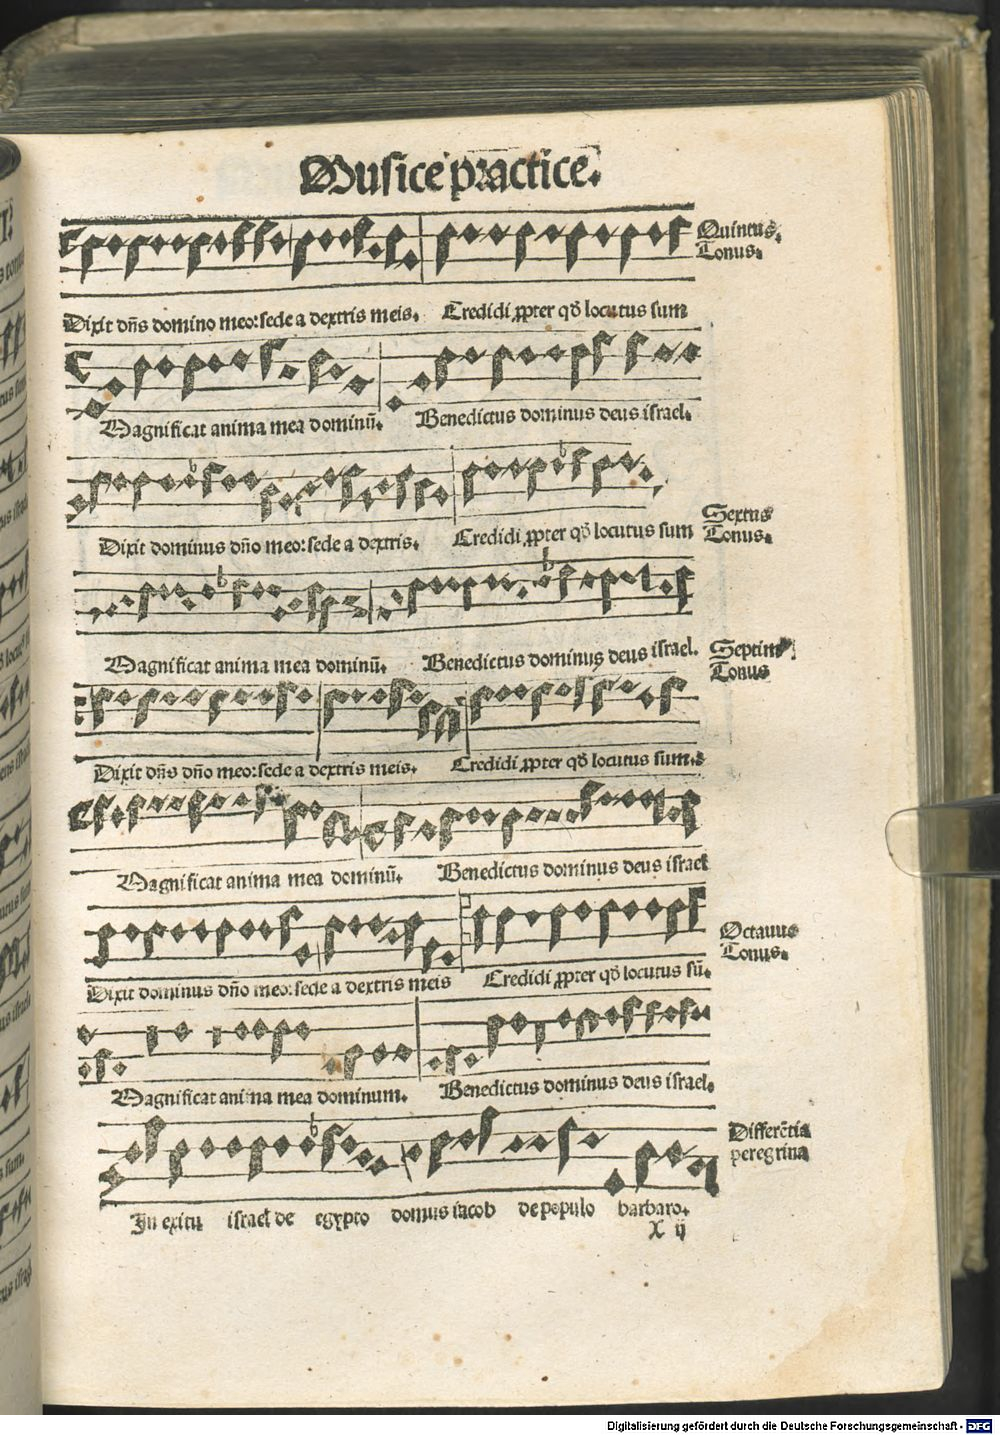 Musice practice.
Quintus
Tonus.
Dixit dn̄s domino meo: sede a dextris meis. Credidi ꝓpter qd̄ locutus sum
Magnificat anima mea dominū. Benedictus dominus deus israel.
Sextus
Tonus.
Dixit dominus dn̄o meo: sede a dextris. Credidi ꝓpter qd̄ locutus sum
Magnificat anima mea dominū. Benedictus dominus deus israel.
Septimꝰ
Tonus
Dixit dn̄s dn̄o meo: sede a dextris meis. Credidi ꝓpter qd̄ locutus sum.
Magnificat anima mea dominū. Benedictus dominus deus israel
Octauus
Tonus.
Dixit dominus dn̄o meo: sede a dextris meis Credidi ꝓpter qd̄ locutus sū.
Magnificat anima mea dominum. Benedictus dominus deus israel.
Differētia
peregrina
In exitu israel de egypto domus iacob de populo barbaro.
X ij
Digitalisierung gefördert durch die Deutsche Forschungsgemeinschaft - DFG